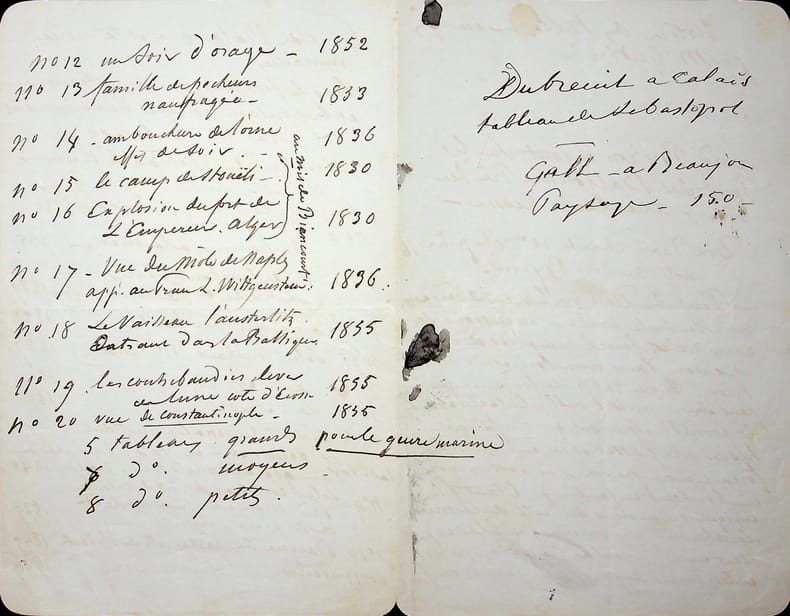 no 12 un Soir d'orage - 1852
no 13 famille de pecheurs
naufragée - 1833
no 14 - ambouchure de l'orne 1836
effet de soir
no 15 le camp de Staouëli - 1830
no 16 Explosion du fort de
L'Empereur. Alger 1830
au Mis de Biencourt
no 17 - Vue du Môle de Naples
app. au Prince L. Wittgenstein. 1836.
no 18 Le Vaisseau l'austerlitz
dans la Baltique 1855
no 19 . les contrebandiers
lune cote d'Ecosse 1855
no 20 vue de constantinople - 1855
5 tableaux grands pour le genre marine
do. moyens
8 do. petits.
Dubreuil a Calais
tableau de Sebastopol
Gall - a Beaujon
Paysage - 150 -